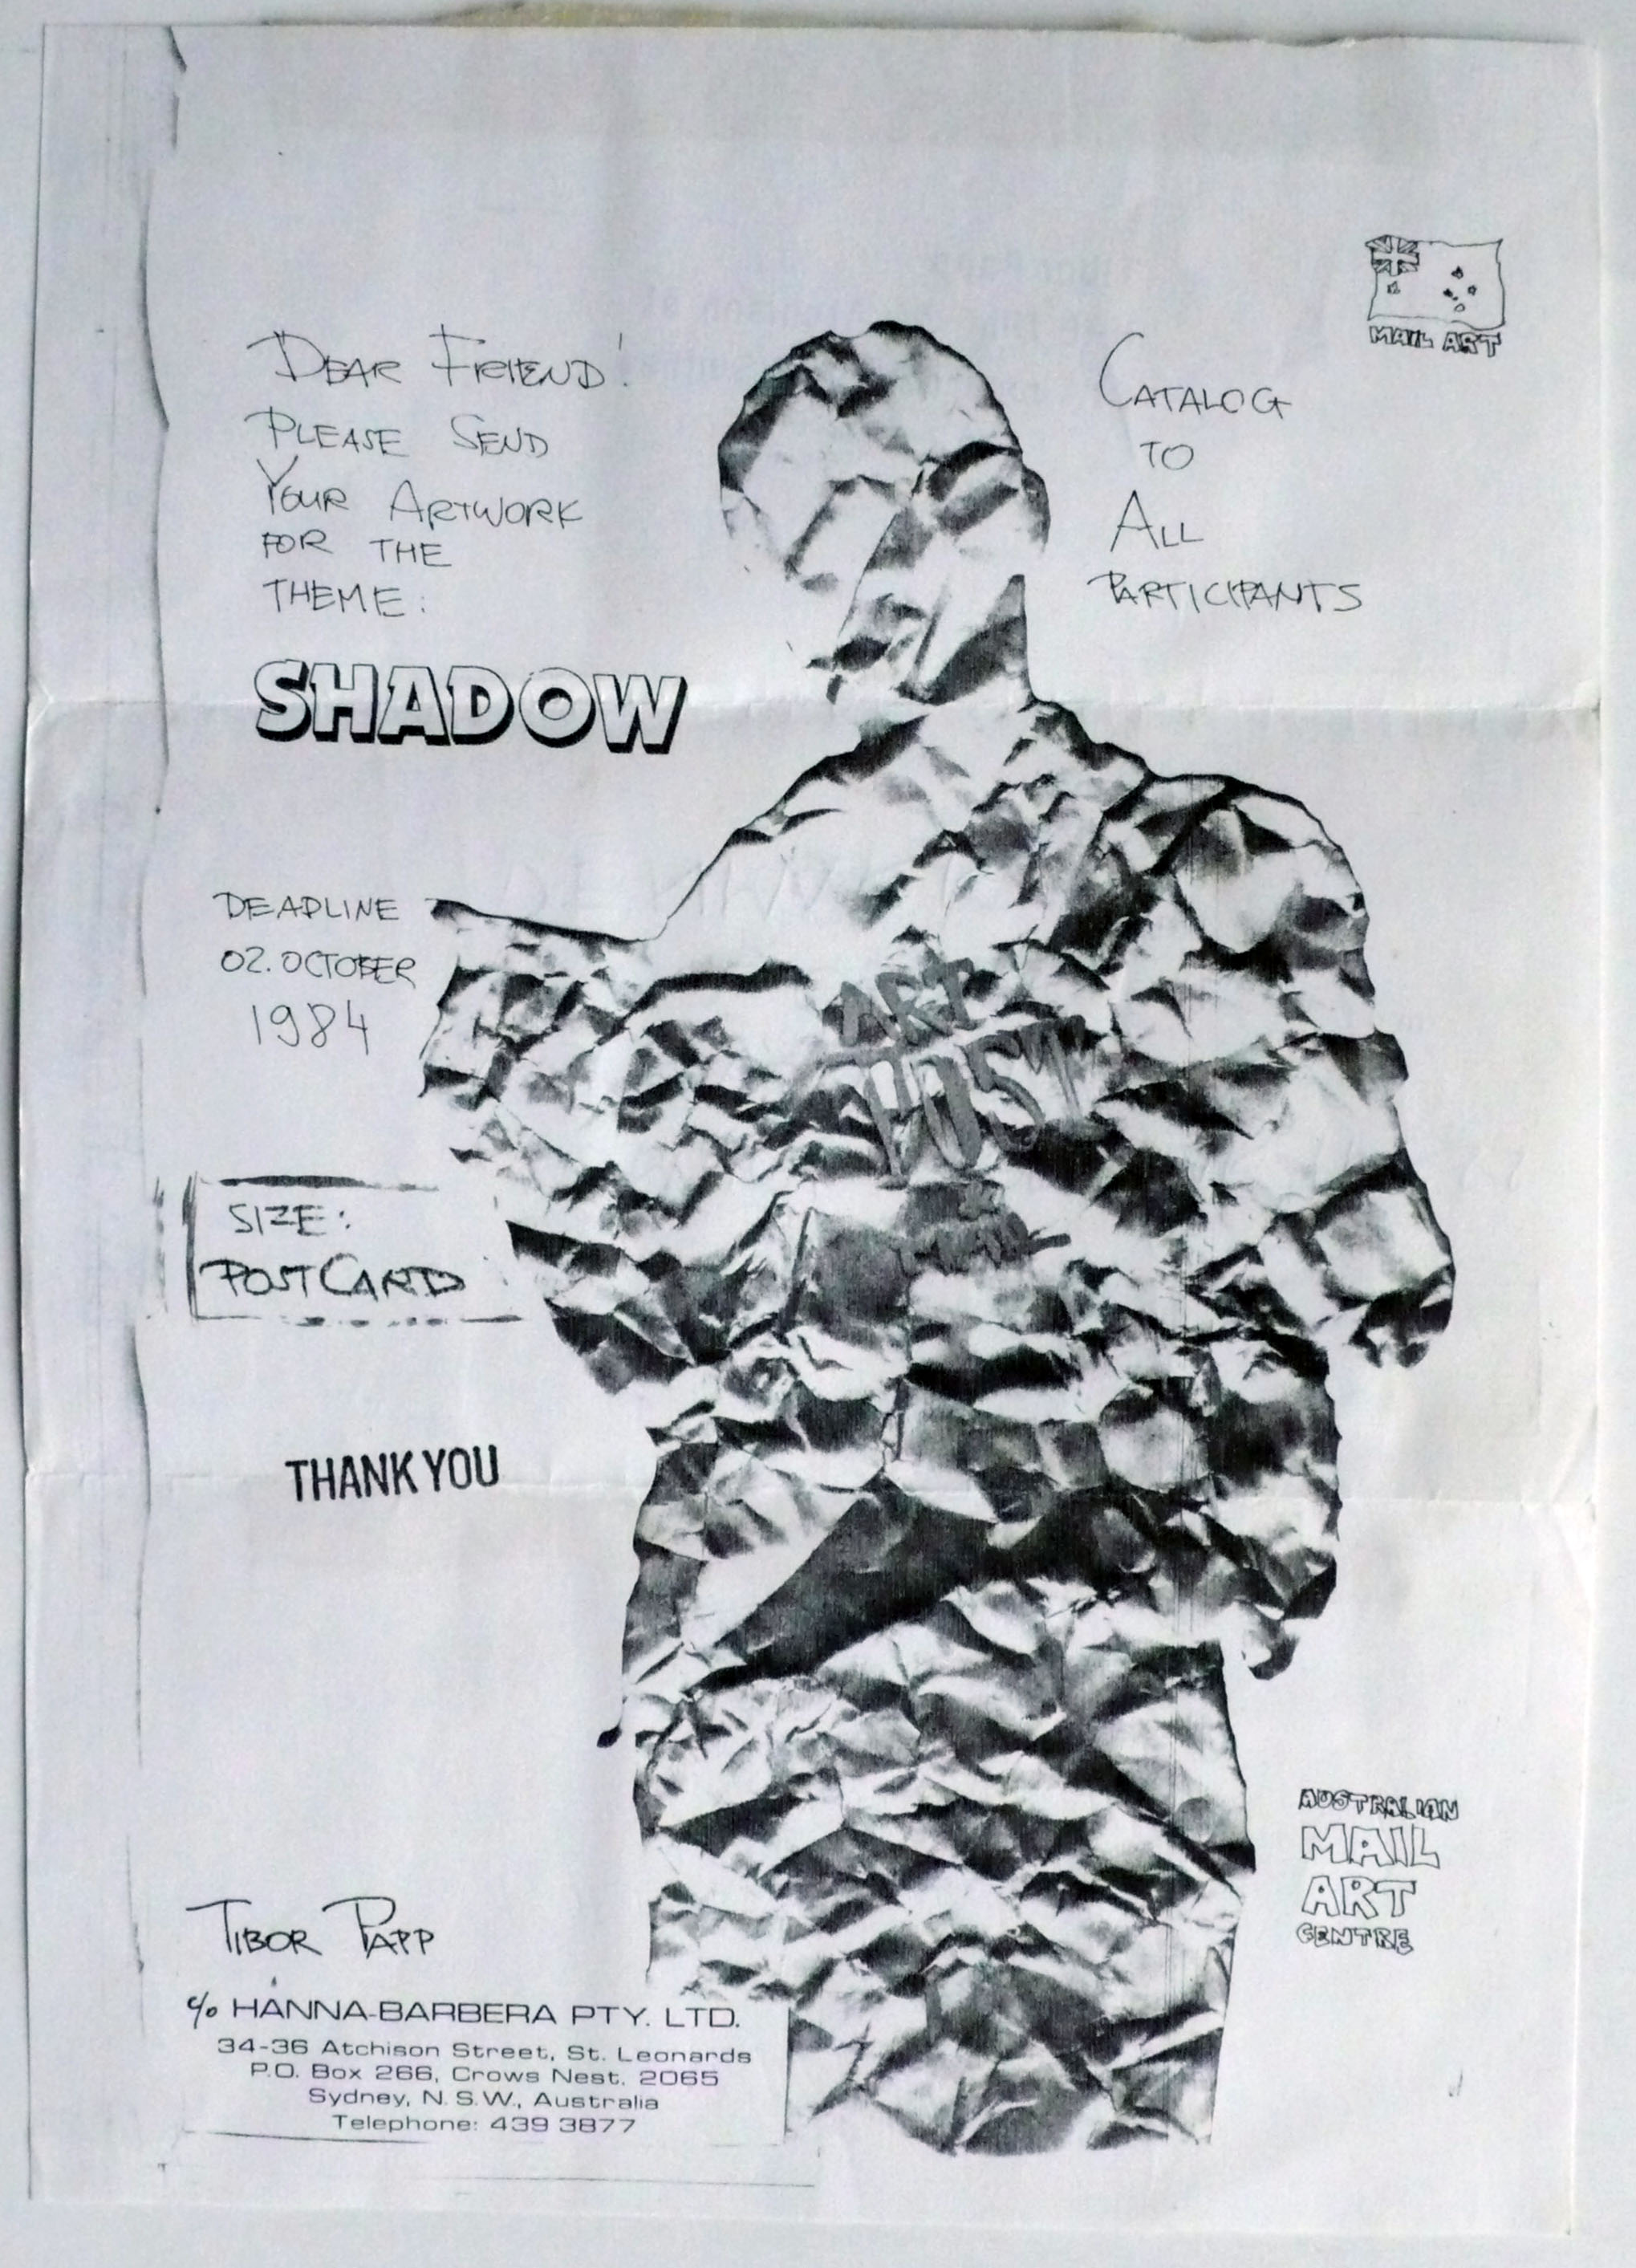 MAIL ART
DEAR FRIEND!
PLEASE SEND
YOUR ARTWORK
FOR THE
THEME:
SHADOW
CATALOG
TO
ALL
PARTICIPANTS
DEADLINE
02. OCTOBER
1984
ART
SIZE:
POSTCARD
THANK YOU
AUSTRALIAN
MAIL
ART
CENTRE
TIBOR PAPP
c/o HANNA-BARBERA PTY. LTD.
34-36 Atchison Street, St. Leonards
P.O. Box 266, Crows Nest. 2065
Sydney, N.S.W., Australia
Telephone: 439 3877